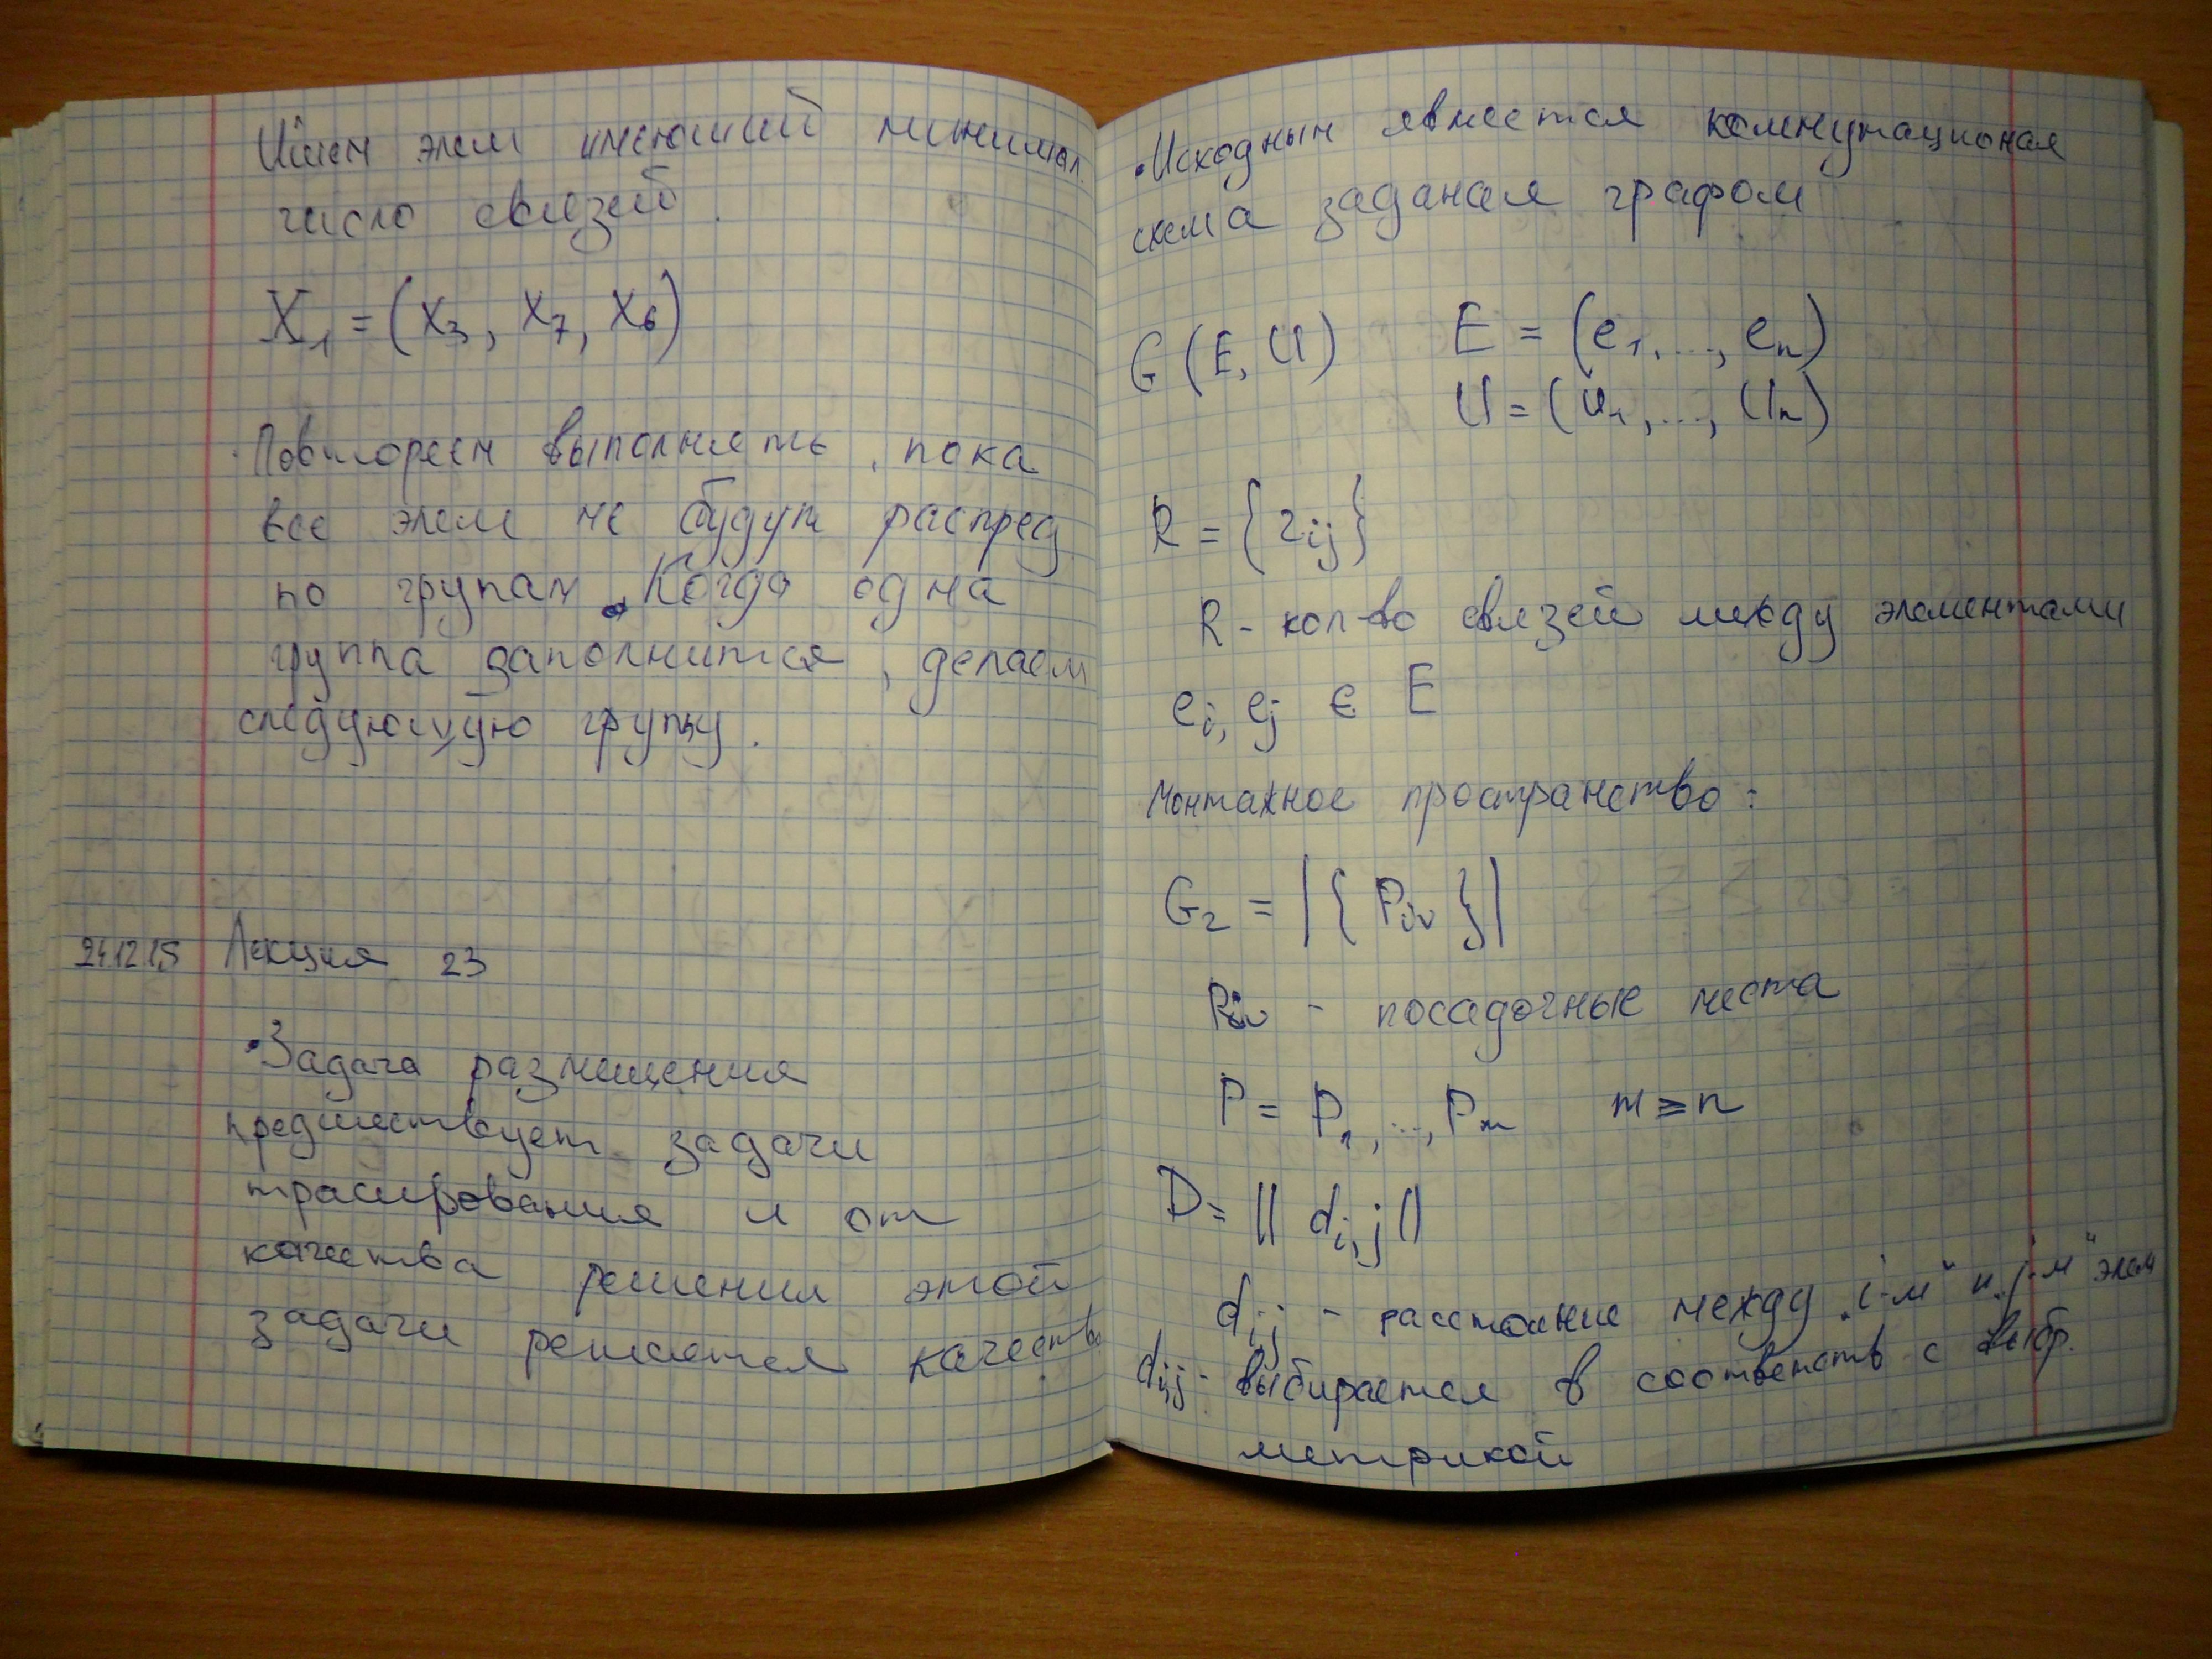 Ищем элем имеющий минимал.
число связей.
X₁ = (x₃, x₇, x₆)
Повторяем выполнять, пока
все элем не будут распред
по групам. Когда одна
группа заполнится, делаем
следующую групу.
24.12.15 Лекция 23
•Задача размещения
предшествует задачи
трасирования и от
качества решения этой
задачи решается качество
•Исходным является коммутационая
схема заданая графом
G (E, U) E = (e₁, ..., eₙ)
U = (u₁, ..., uₙ)
R = {rᵢⱼ}
R - кол-во связей между элементами
eᵢ, eⱼ ∈ E
Монтажное пространство:
G₂ = |{Pᵢᵥ}|
Pᵢᵥ - посадочные места
P = P₁, ..., Pₘ m ≥ n
D = || dᵢ,ⱼ ||
dᵢ,ⱼ - расстояние между „i-м" и „j-м" элем
dᵢ,ⱼ - выбирается в соответств с выбр.
метрикой